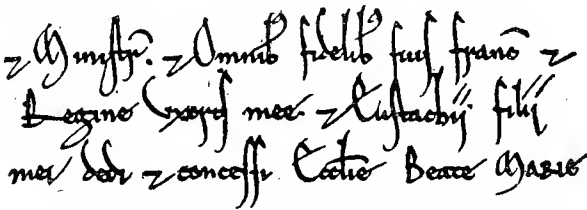 ⁊ Ministr̄. ⁊ Omnib⁹ fidelib⁹ suis francis ⁊
Regine Uxoris mee. ⁊ Eustachij filij
mei dedi ⁊ concessi Eccl̄ie Beate Marie